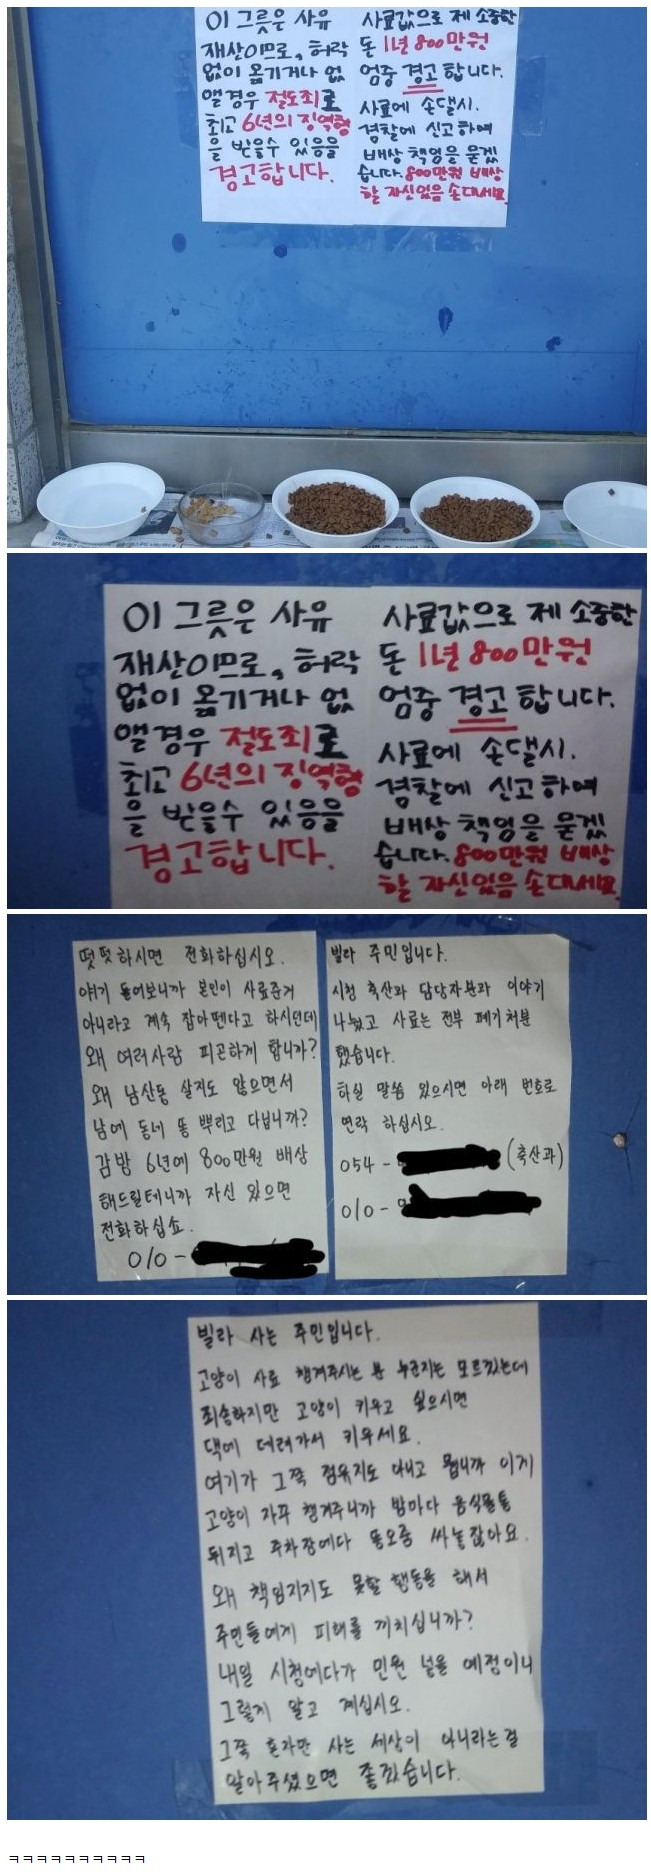 이 그릇은 사유
재산이므로, 허락
없이 옮기거나 없
앨경우 절도죄로
최고 6년의 징역형
을 받을수 있음을
경고합니다.
사료값으로 제 소중한
돈 1년 800만원
엄중 경고 합니다.
사료에 손댈시.
경찰에 신고하여
배상 책임을 묻겠
습니다. 800만원 배상
할 자신있음 손대세요.
이 그릇은 사유
재산이므로, 허락
없이 옮기거나 없
앨경우 절도죄로
최고 6년의 징역형
을 받을수 있음을
경고합니다.
사료값으로 제 소중한
돈 1년 800만원
엄중 경고 합니다.
사료에 손댈시.
경찰에 신고하여
배상 책임을 묻겠
습니다. 800만원 배상
할 자신있음 손대세요.
떳떳하시면 전화하십시오.
얘기 들어보니까 본인이 사료준거
아니라고 계속 잡아뗀다고 하시던데
왜 여러사람 피곤하게 합니까?
왜 남산동 살지도 않으면서
남에 동네 똥 뿌리고 다닙니까?
감방 6년에 800만원 배상
해드릴테니까 자신 있으면
전화하십쇼.
010-
빌라 주민입니다.
시청 축산과 담당자분과 이야기
나눴고 사료는 전부 폐기처분
했습니다.
하실 말씀 있으시면 아래 번호로
연락 하십시오.
054- (축산과)
010-
빌라 사는 주민입니다.
고양이 사료 챙겨주시는 분 누군지는 모르겠는데
죄송하지만 고양이 키우고 싶으시면
댁에 데려가서 키우세요.
여기가 그쪽 점유지도 아니고 뭡니까 이게
고양이 자꾸 챙겨주니까 밤마다 음식물통
뒤지고 주차장에다 똥오줌 싸놓잖아요.
왜 책임지지도 못할 행동을 해서
주민들에게 피해를 끼치십니까?
내일 시청에다가 민원 넣을 예정이니
그렇게 알고 계십시오.
그쪽 혼자만 사는 세상이 아니라는걸
알아주셨으면 좋겠습니다.
ㅋㅋㅋㅋㅋㅋㅋㅋㅋㅋ